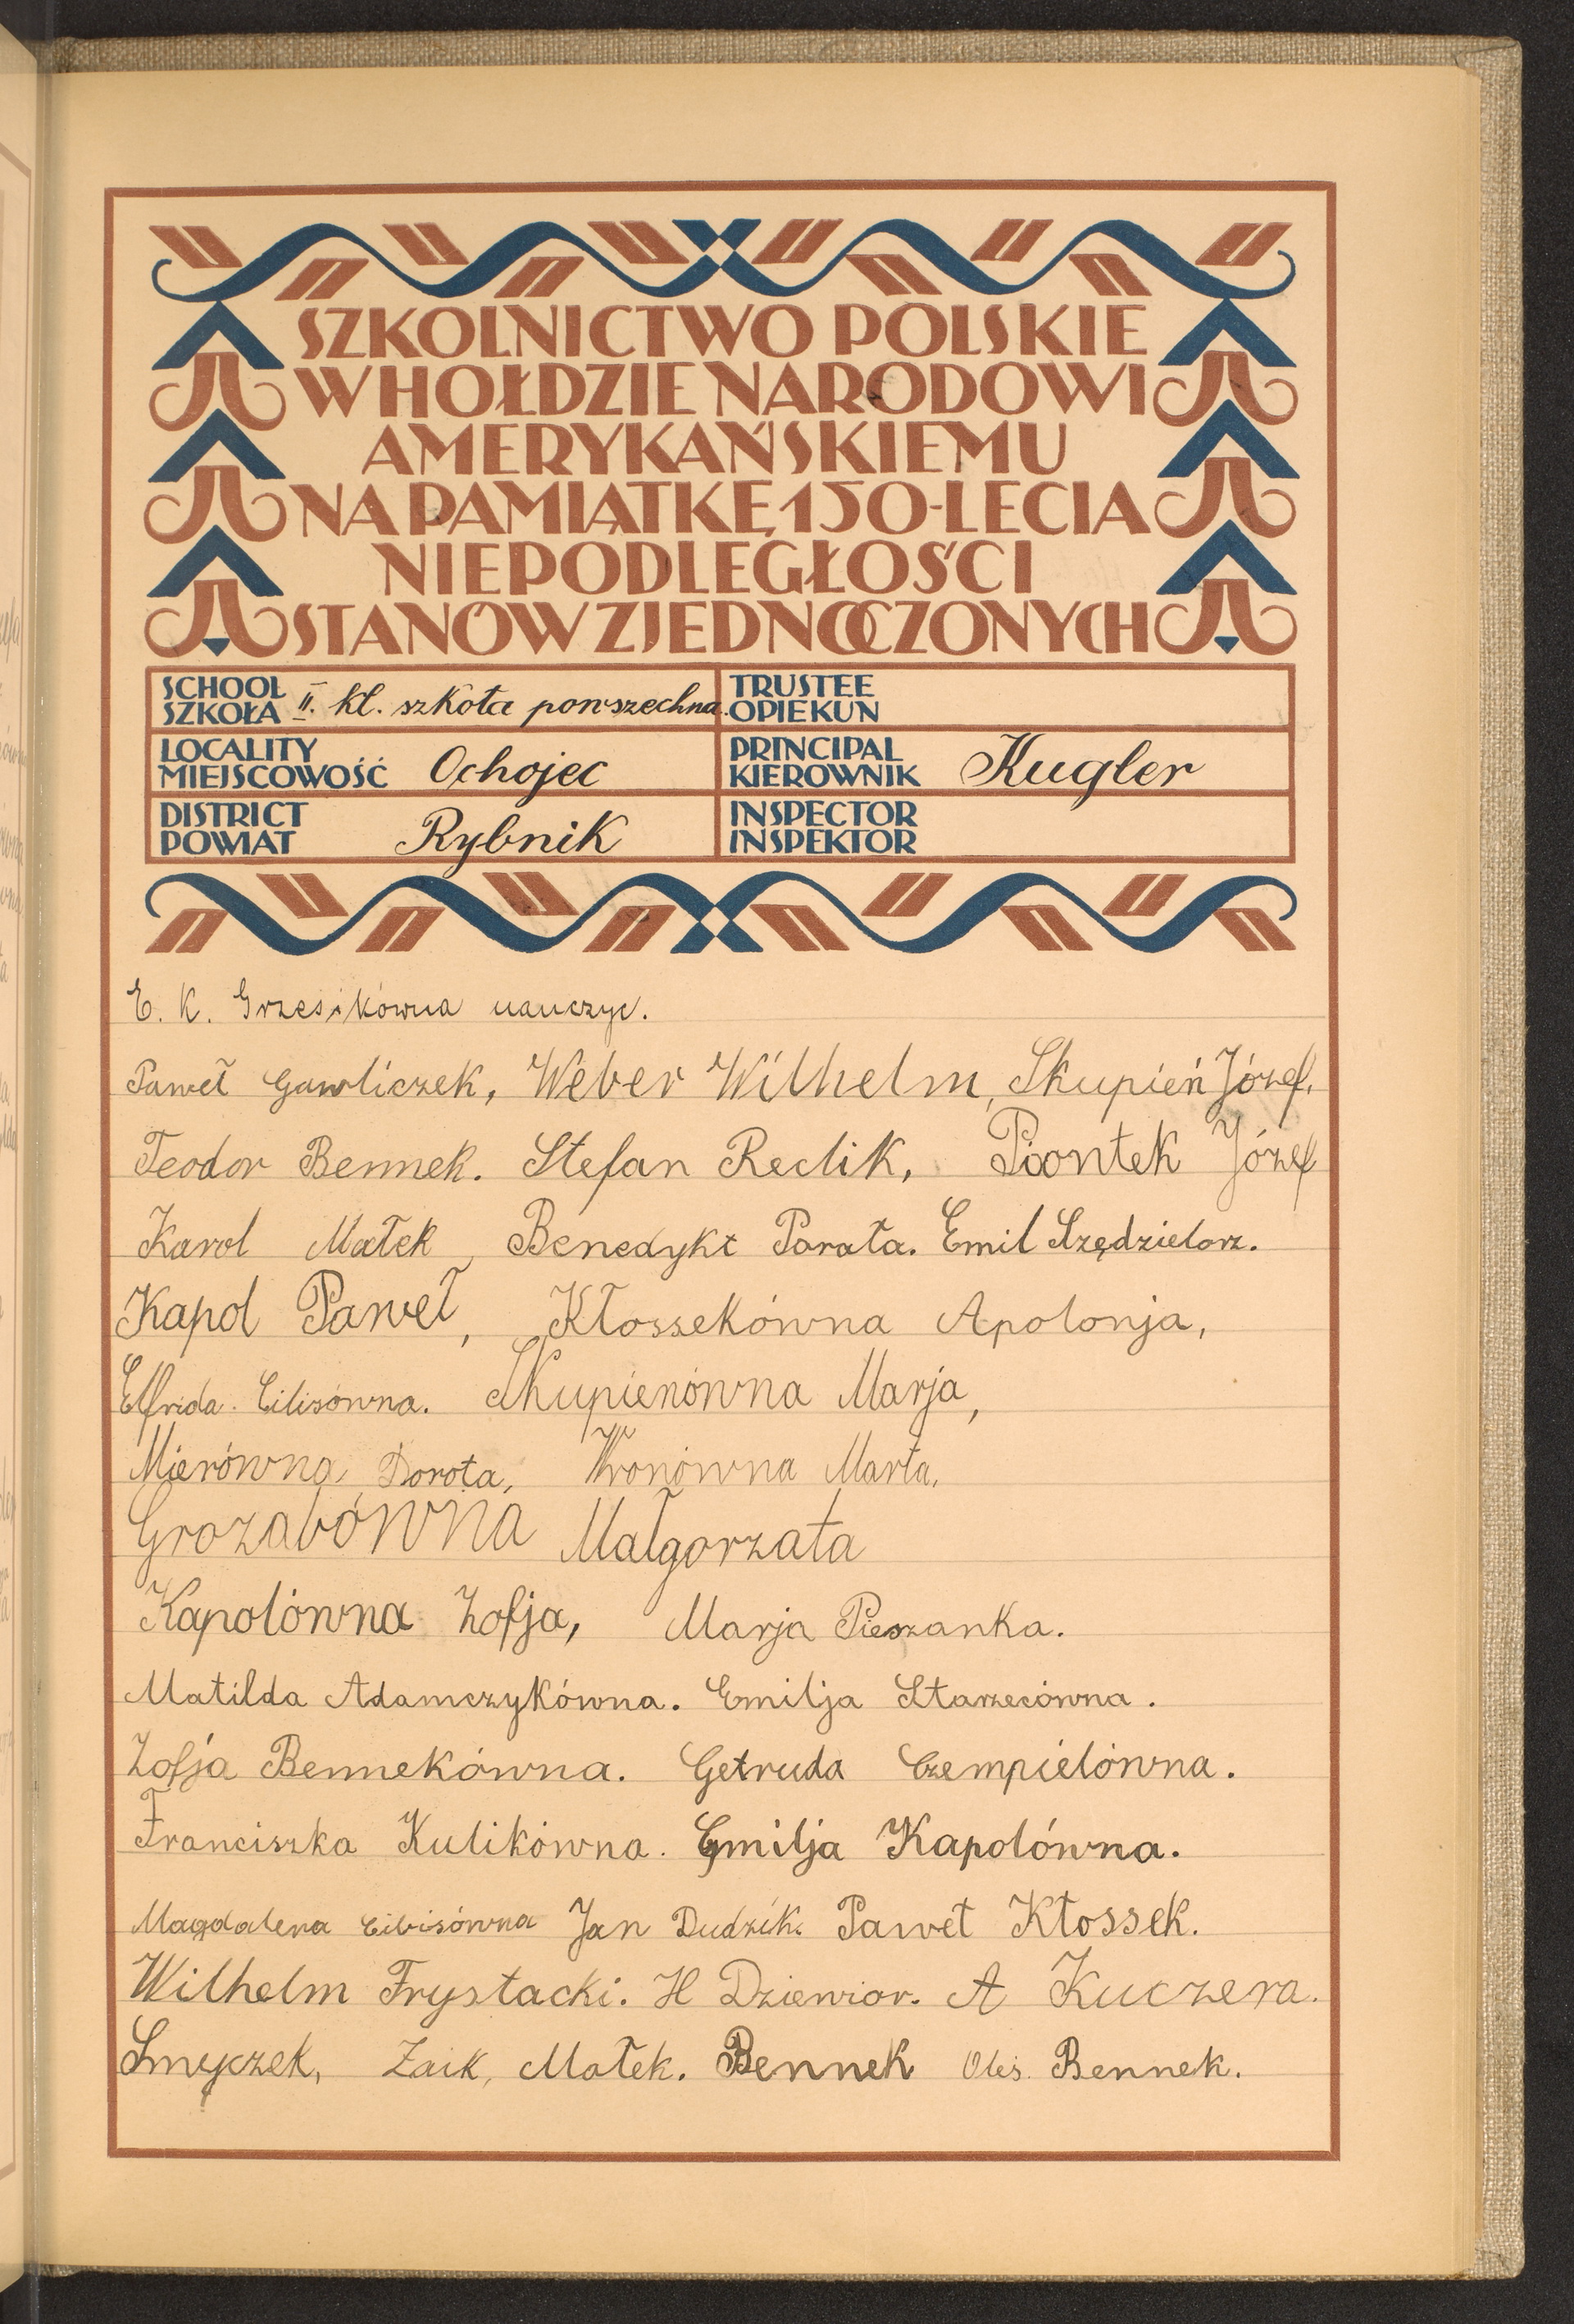 SZKOLNICTWO POLSKIE
W HOŁDZIE NARODOWI
AMERYKAŃSKIEMU
NA PAMIĄTKĘ 150-LECIA
NIEPODLEGŁOŚCI
STANÓW ZJEDNOCZONYCH
SCHOOL
SZKOŁA II. kl. szkoła powszechna.
TRUSTEE
OPIEKUN
LOCALITY
MIEJSCOWOŚĆ Ochojec
PRINCIPAL
KIEROWNIK Kugler
DISTRICT
POWIAT Rybnik
INSPECTOR
INSPEKTOR
E. K. Grzesikówna nauczyc.
Paweł Gawliczek, Weber Wilhelm, Skupień Józef.
Teodor Bennek. Stefan Reclik, Piontek Józef
Karol Małek, Benedykt Parała. Emil Szędzielorz.
Kapol Paweł, Kłossekówna Apolonja,
Elfrida Cibisówna. Skupienówna Marja,
Mierówna Dorota, Wronówna Marta.
Grozabówna Małgorzata
Kapolówna Zofja, Marja Pieszanka.
Matilda Adamczykówna. Emilja Starzecówna.
Zofja Bennekówna. Getruda Czempielówna.
Franciszka Kulikówna. Emilja Kapolówna.
Magdalena Cibisówna Jan Dudzik. Paweł Kłossek.
Wilhelm Frystacki. H Dziewior. A Kuczera.
Smyczek, Zaik, Małek. Bennek Oleś. Bennek.